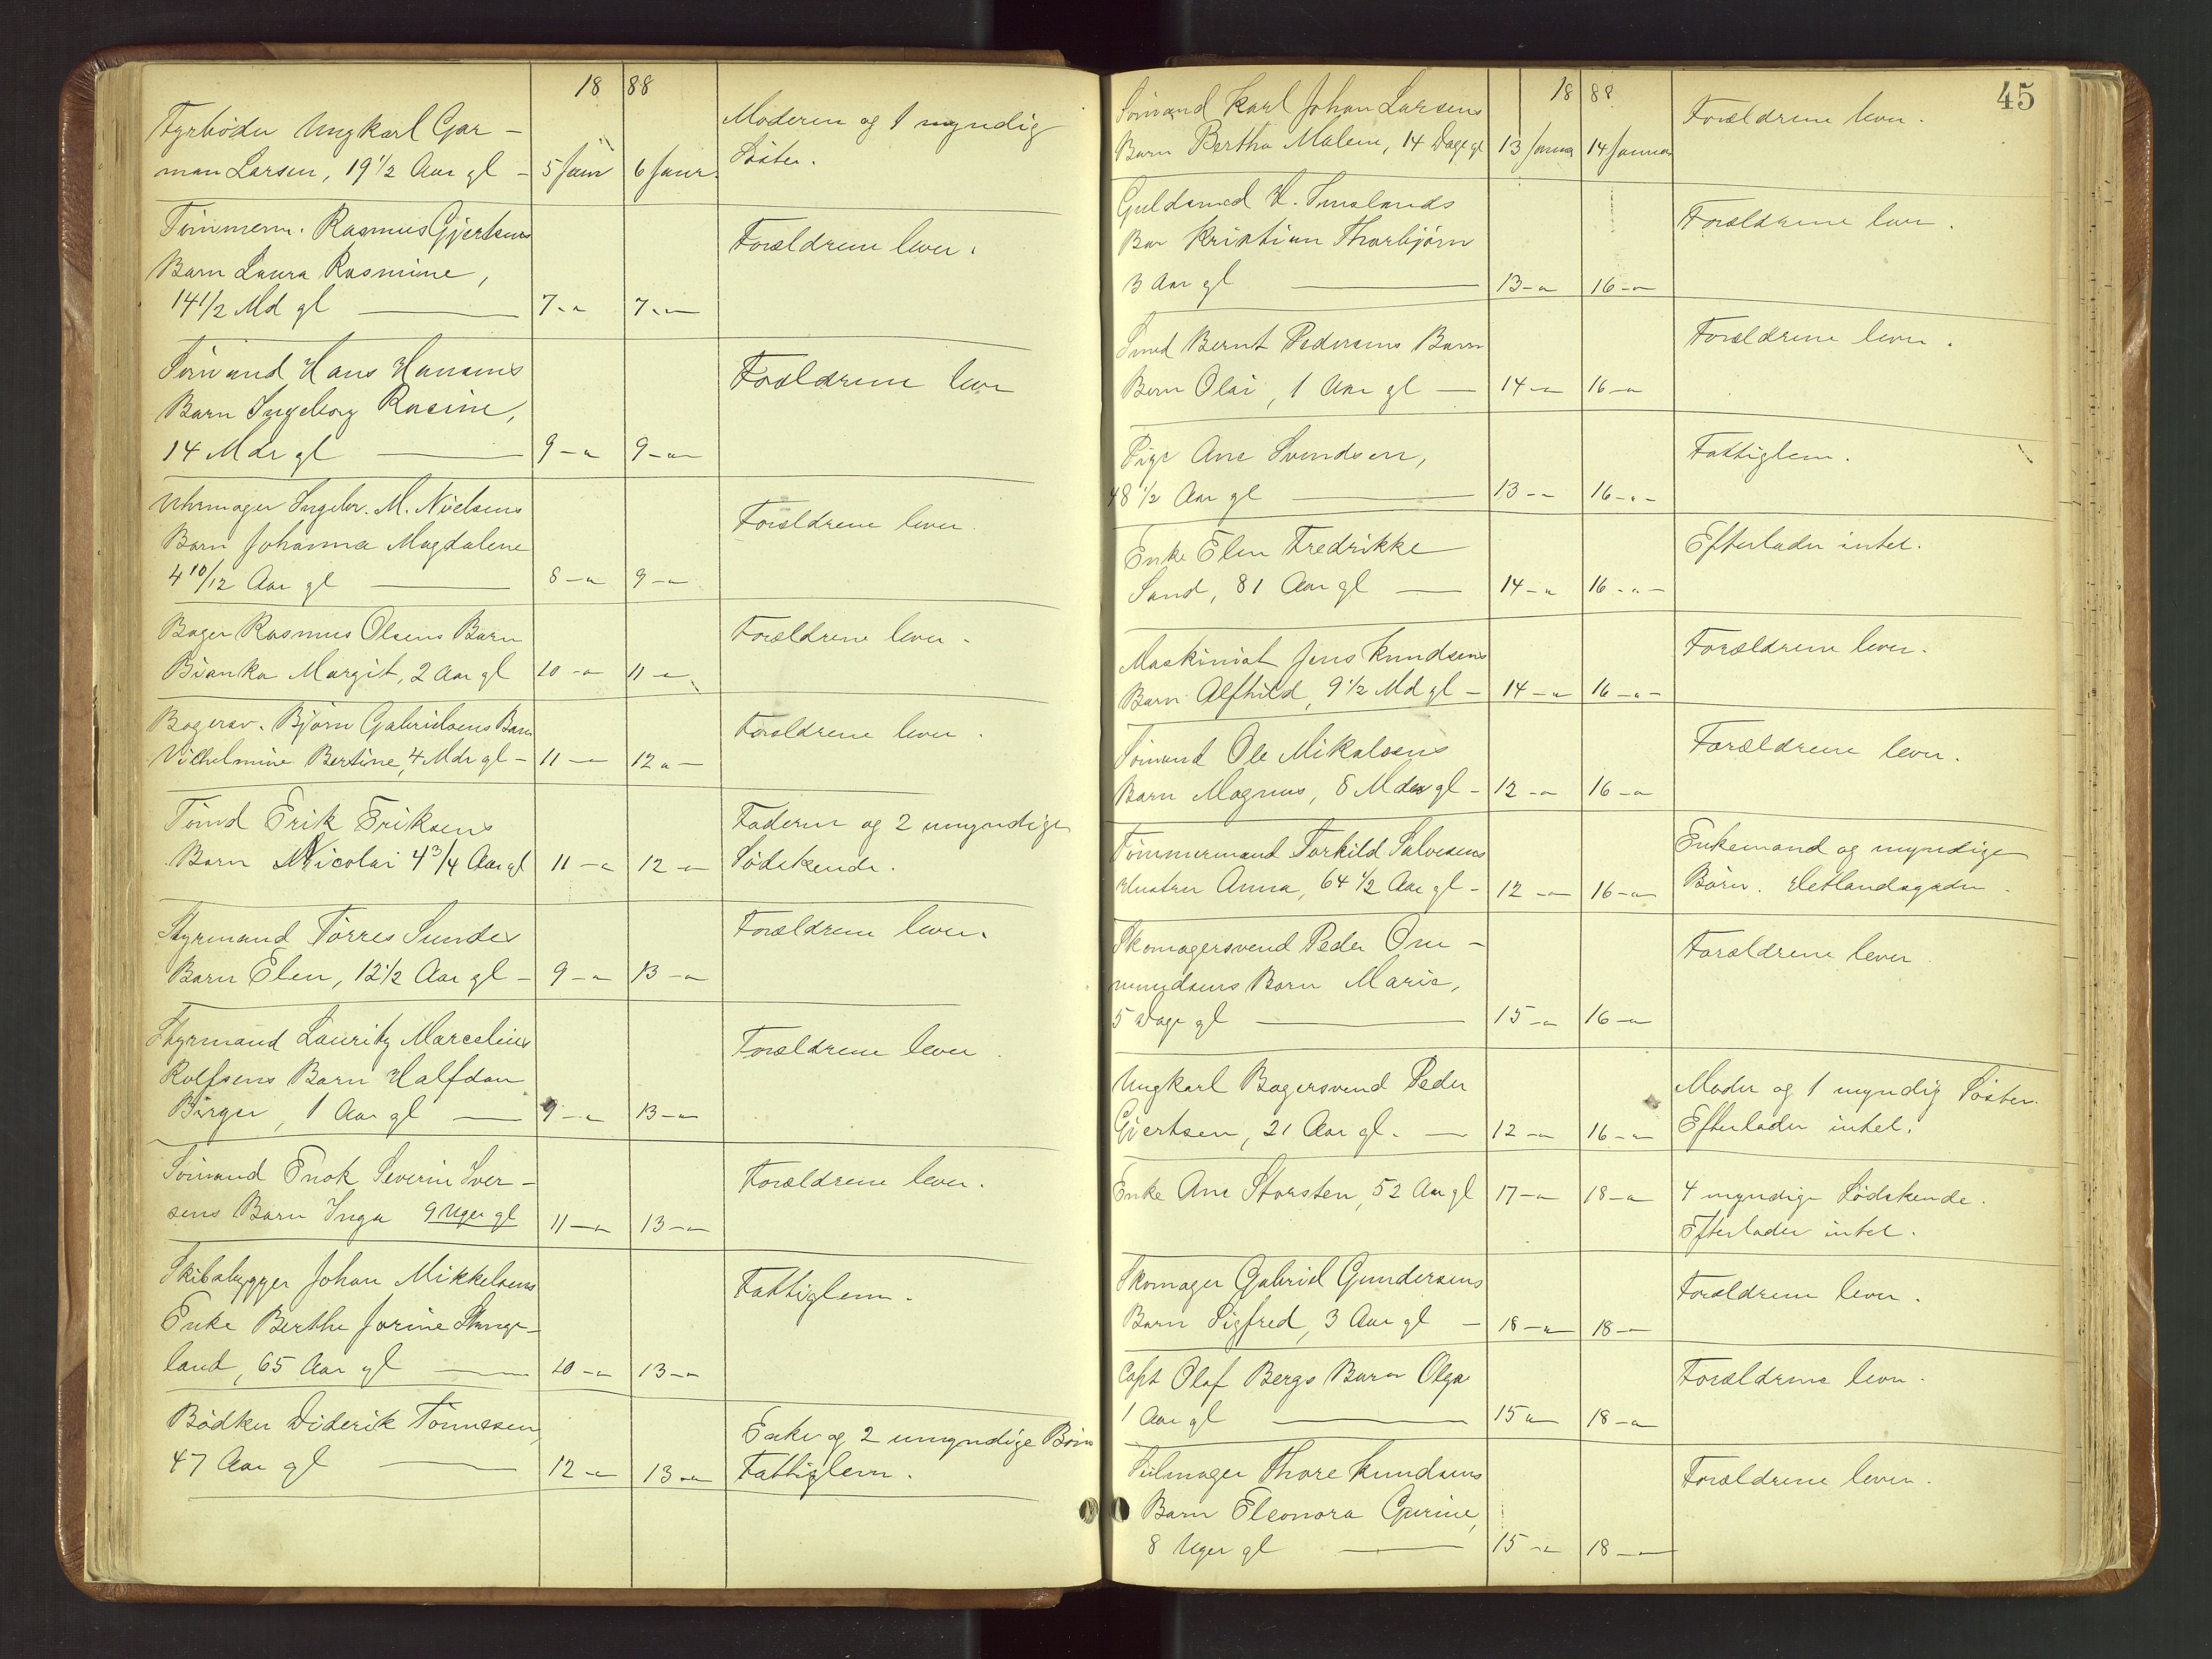 18 88
Fyrböder Ungkarl Gar-
man Larsen, 19 1/2 Aar gl - 5 Janr 6 Janr.
Moderen og 1 myndig
Söster.
Tømmerm. Rasmus Gjertsens
Barn Laura Rasmine,
14 1/2 Md gl 7-" 7-"
Forældrene lever.
Sömand Hans Hansens
Barn Ingeborg Rasine,
14 Mdr gl 9-" 9-"
Forældrene lever
Uhrmager Ingebr. M. Nielsens
Barn Johanna Magdalene
4 10/12 Aar gl 8-" 9-"
Forældrene lever.
Bager Rasmus Olsens Barn
Bianka Margit, 2 Aar gl 10-" 11-"
Forældrene lever.
Bagersv. Björn Gabrielsens Barn
Vilhelmine Bertine, 4 Mdr gl - 11-" 12"-
Forældrene lever.
Tömd Erik Eriksens
Barn Nicolai 4 3/4 Aar gl 11-" 12-"
Faderen og 2 umyndige
Södskende.
Styrmand Törres Sundes
Barn Elen, 12 1/2 Aar gl - 9-" 13-"
Forældrene lever.
Styrmand Lauritz Marcelius
Rolfsens Barn Halfdan
Birger, 1 Aar gl 9-" 13-"
Forældrene lever.
Sömand Enok Severin Iver-
sens Barn Inga 9 Uger gl 11-" 13-"
Forældrene lever.
Skibsbygger Johan Mikkelsens
Enke Berthe Jorine Stange-
land, 65 Aar gl 10-" 13-"
Fattiglem.
Bödker Diderik Tönnesen,
47 Aar gl 12-" 13-"
Enke og 2 umyndige Börn
Fattiglem.
45
18 88
Sömand Karl Johan Larsens
Barn Bertha Malene, 14 Dage gl 13 Janua 14 Januar
Forældrene lever.
Guldsmed H.
Bar Kristian Thorbjörn
3 Aar gl 13-" 16-"
Forældrene lever.
Smed Bernt Pedersens Barn
Bern Olai, 1 Aar gl 14-" 16-"
Forældrene lever.
Pige Ane Svendsen,
48 1/2 Aar gl 13-" 16-"-
Fattiglem.
Enke Elen Fredrikke
Sand, 81 Aar gl 14-" 16-"-
Efterlader intet.
Maskinist Jens Knudsens
Barn Alfhild, 9 1/2 Md gl - 14-" 16-"-
Forældrene lever.
Sömand Ole Mikalsens
Barn Magnus, 8 Mdr gl - 12-" 16-"
Forældrene lever.
Tömmermand Torkild Salvesens
Hustru Anna, 64 1/2 Aar gl - 12-" 16-"
Enkemand og myndige
Börn. Hetlandsgaden.
Skomagersvend Peder Om-
mundsens Barn Marie,
5 Dage gl 15-" 16-"
Forældrene lever.
Ungkarl Bagersvend Peder
Gjertsen, 21 Aar gl. 12-" 16-"
Moder og 1 myndig Söster.
Efterlader intet.
Enke Ane Storsten, 52 Aar gl 17-" 18-"
4 myndige Södskende.
Efterlader intet.
Skomager Gabriel Gundersens
Barn Sigfred, 3 Aar gl - 18-" 18-"
Forældrene lever.
Capt Olaf Bergs Barn Olga
1 Aar gl 15" 18-"
Forældrene lever.
Seilmager Thore Knudsens
Barn Eleonora Gurine,
8 Uger gl 15-" 18-"
Forældrene lever.